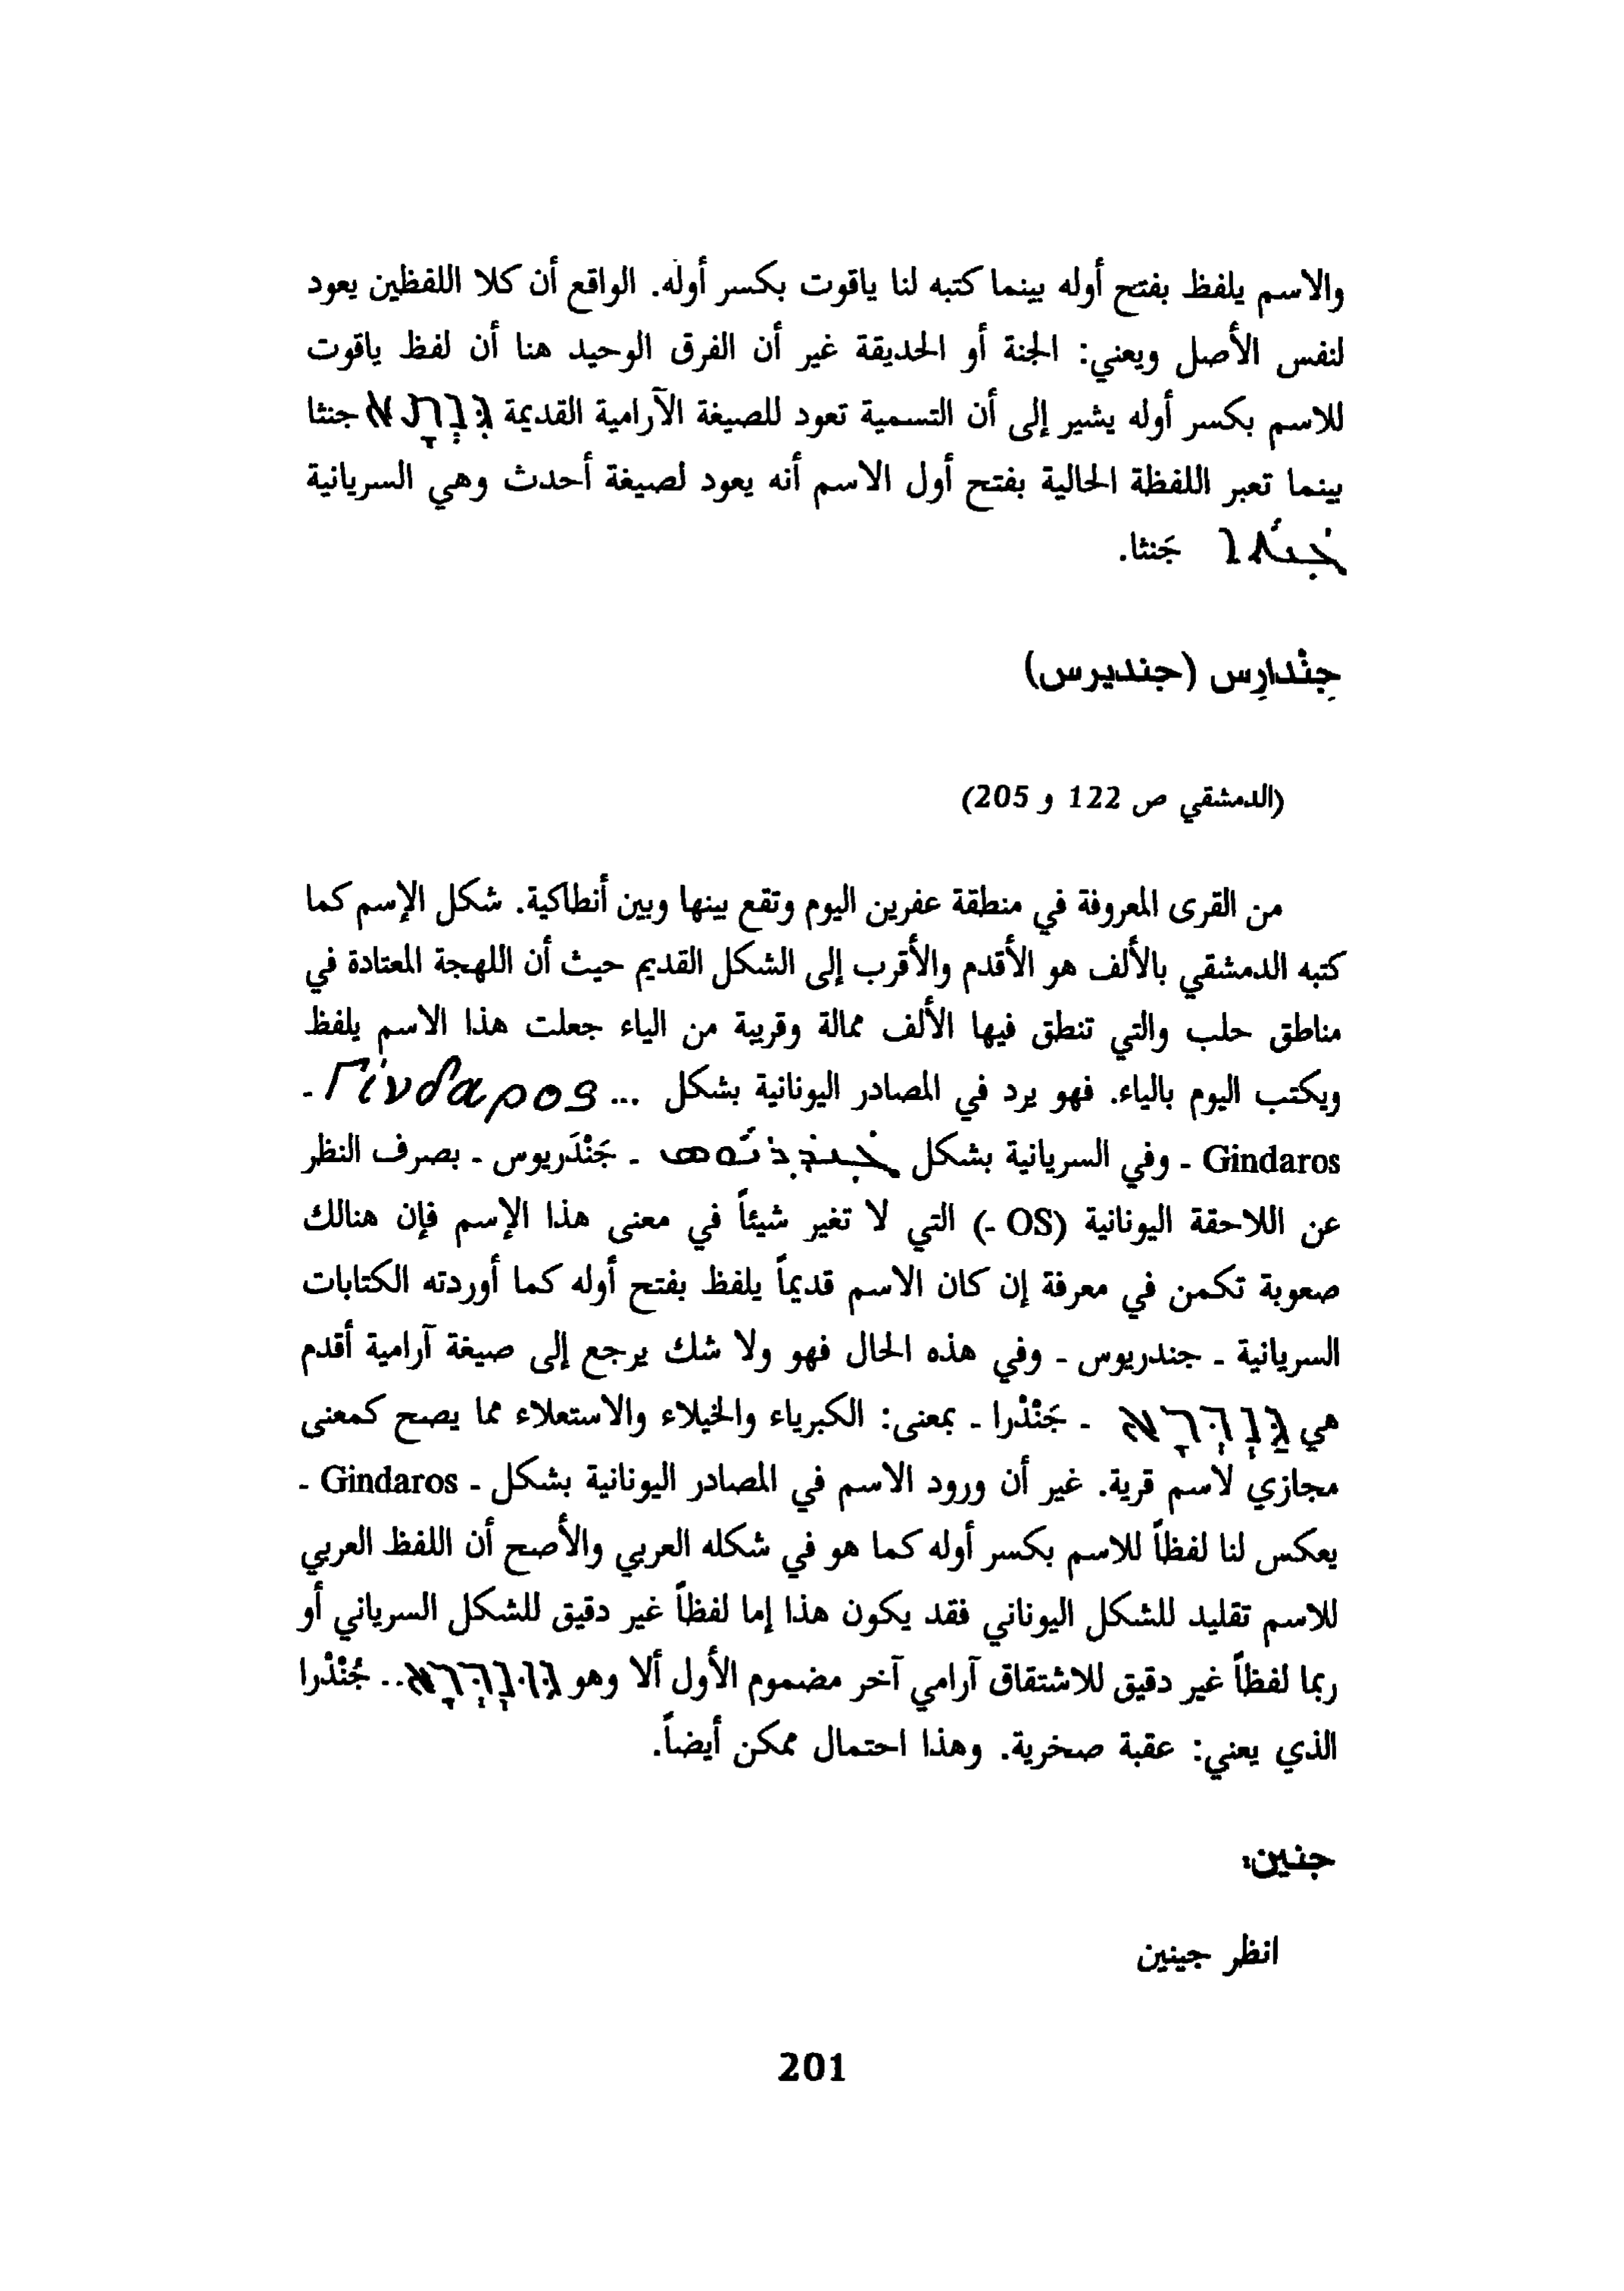 والاسم يلفظ بفتح أوله بينما كتبه لنا ياقوت بكسر أوله. الواقع أن كلا اللفظين يعود
لنفس الأصل ويعني: الجنة أو الحديقة غير أن الفرق الوحيد هنا أن لفظ ياقوت
للاسم بكسر أوله يشير إلى أن التسمية تعود للصيغة الآرامية القديمة גִּנְתָא جنثا
بينما تعبر اللفظة الحالية بفتح أول الاسم أنه يعود لصيغة أحدث وهي السريانية
جَنثا.
جِنْدارِس (جنديرس)
(الدمشقي ص 122 و 205)
من القرى المعروفة في منطقة عفرين اليوم وتقع بينها وبين أنطاكية. شكل الإسم كما
كتبه الدمشقي بالألف هو الأقدم والأقرب إلى الشكل القديم حيث أن اللهجة المعتادة في
مناطق حلب والتي تنطق فيها الألف ممالة وقريبة من الياء جعلت هذا الاسم يلفظ
ويكتب اليوم بالياء. فهو يرد في المصادر اليونانية بشكل ... Γίνδαρος -
Gindaros - وفي السريانية بشكل - جَنْدَريوس - بصرف النظر
عن اللاحقة اليونانية (OS -) التي لا تغير شيئاً في معنى هذا الإسم فإن هنالك
صعوبة تكمن في معرفة إن كان الاسم قديماً يلفظ بفتح أوله كما أوردته الكتابات
السريانية - جندريوس - وفي هذه الحال فهو ولا شك يرجع إلى صيغة آرامية أقدم
هي גַּנְדְּרָא - جَنْدْرا - بمعنى: الكبرياء والخيلاء والاستعلاء مما يصح كمعنى
مجازي لاسم قرية. غير أن ورود الاسم في المصادر اليونانية بشكل - Gindaros -
يعكس لنا لفظاً للاسم بكسر أوله كما هو في شكله العربي والأصح أن اللفظ العربي
للاسم تقليد للشكل اليوناني فقد يكون هذا إما لفظاً غير دقيق للشكل السرياني أو
ربما لفظاً غير دقيق للاشتقاق آرامي آخر مضموم الأول ألا وهو גּוּנְדְּרָא.. جُنْدْرا
الذي يعني: عقبة صخرية. وهذا احتمال ممكن أيضاً.
جنين:
انظر جينين
201